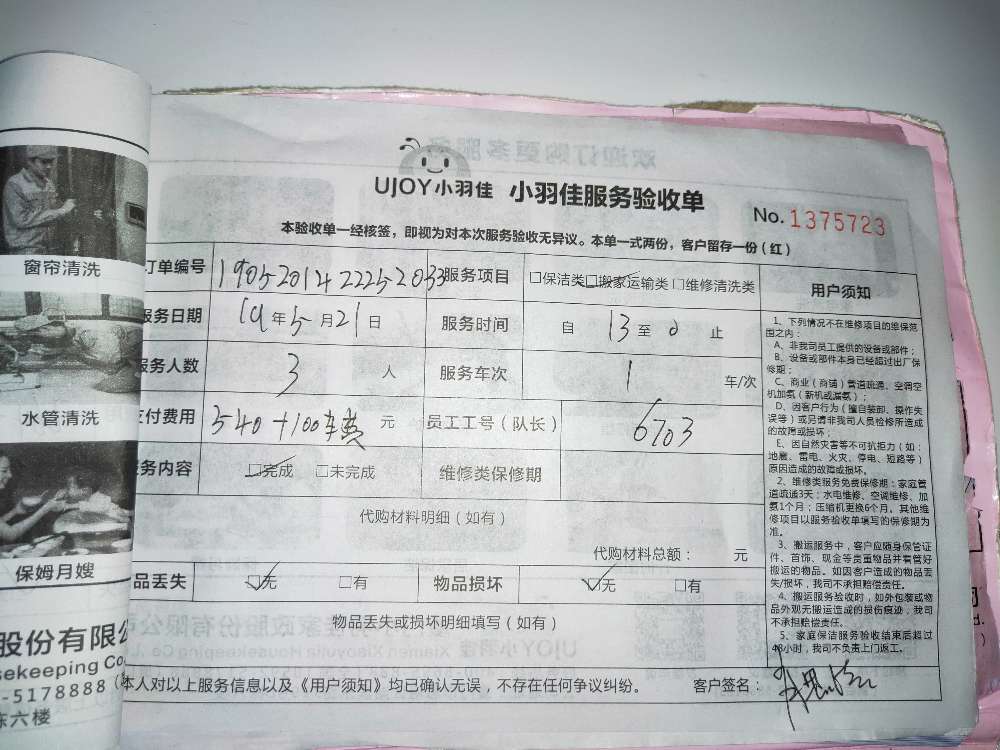 窗帘清洗
水管清洗
保姆月嫂
股份有限公
sekeeping Co.
-5178888
东六楼
UJOY小羽佳 小羽佳服务验收单
No. 1375723
本验收单一经核签，即视为对本次服务验收无异议。本单一式两份，客户留存一份（红）
订单编号 1905201422252033 服务项目 □保洁类☑搬家运输类 □维修清洗类
服务日期 19年5月21日 服务时间 自 13 至 止
服务人数 3 人 服务车次 1 车/次
支付费用 540+100车费 元 员工工号（队长） 6703
服务内容 ☑完成 □未完成 维修类保修期
代购材料明细（如有）
代购材料总额： 元
物品丢失 ☑无 □有 物品损坏 ☑无 □有
物品丢失或损坏明细填写（如有）
本人对以上服务信息以及《用户须知》均已确认无误，不存在任何争议纠纷。 客户签名：
用户须知
1、下列情况不在维修项目的维保范
围之内：
A、非我司员工提供的设备或部件；
B、设备或部件本身已经超过出厂保
修期；
C、商业（商铺）管道疏通、空调空
机加氨（新机或漏氨）；
D、因客户行为（擅自装卸、操作失
误等）或另请非我司人员检修所造成
的故障或损坏；
E、因自然灾害等不可抗拒力（如：
地震、雷电、火灾、停电、短路等）
原因造成的故障或损坏。
2、维修类服务免费保修期：家庭管
道疏通3天；水电维修、空调维修、加
氨1个月；压缩机更换6个月。其他维
修项目以服务验收单填写的保修期为
准。
3、搬运服务中，客户应随身保管证
件、首饰、现金等贵重物品并看管好
搬运的物品。如因客户造成的物品丢
失/损坏，我司不承担赔偿责任。
4、搬运服务验收时，如外包装或物
品外观无搬运造成的损伤痕迹，我司
不承担赔偿责任。
5、家庭保洁服务验收结束后超过
48小时，我司不负责上门返工。